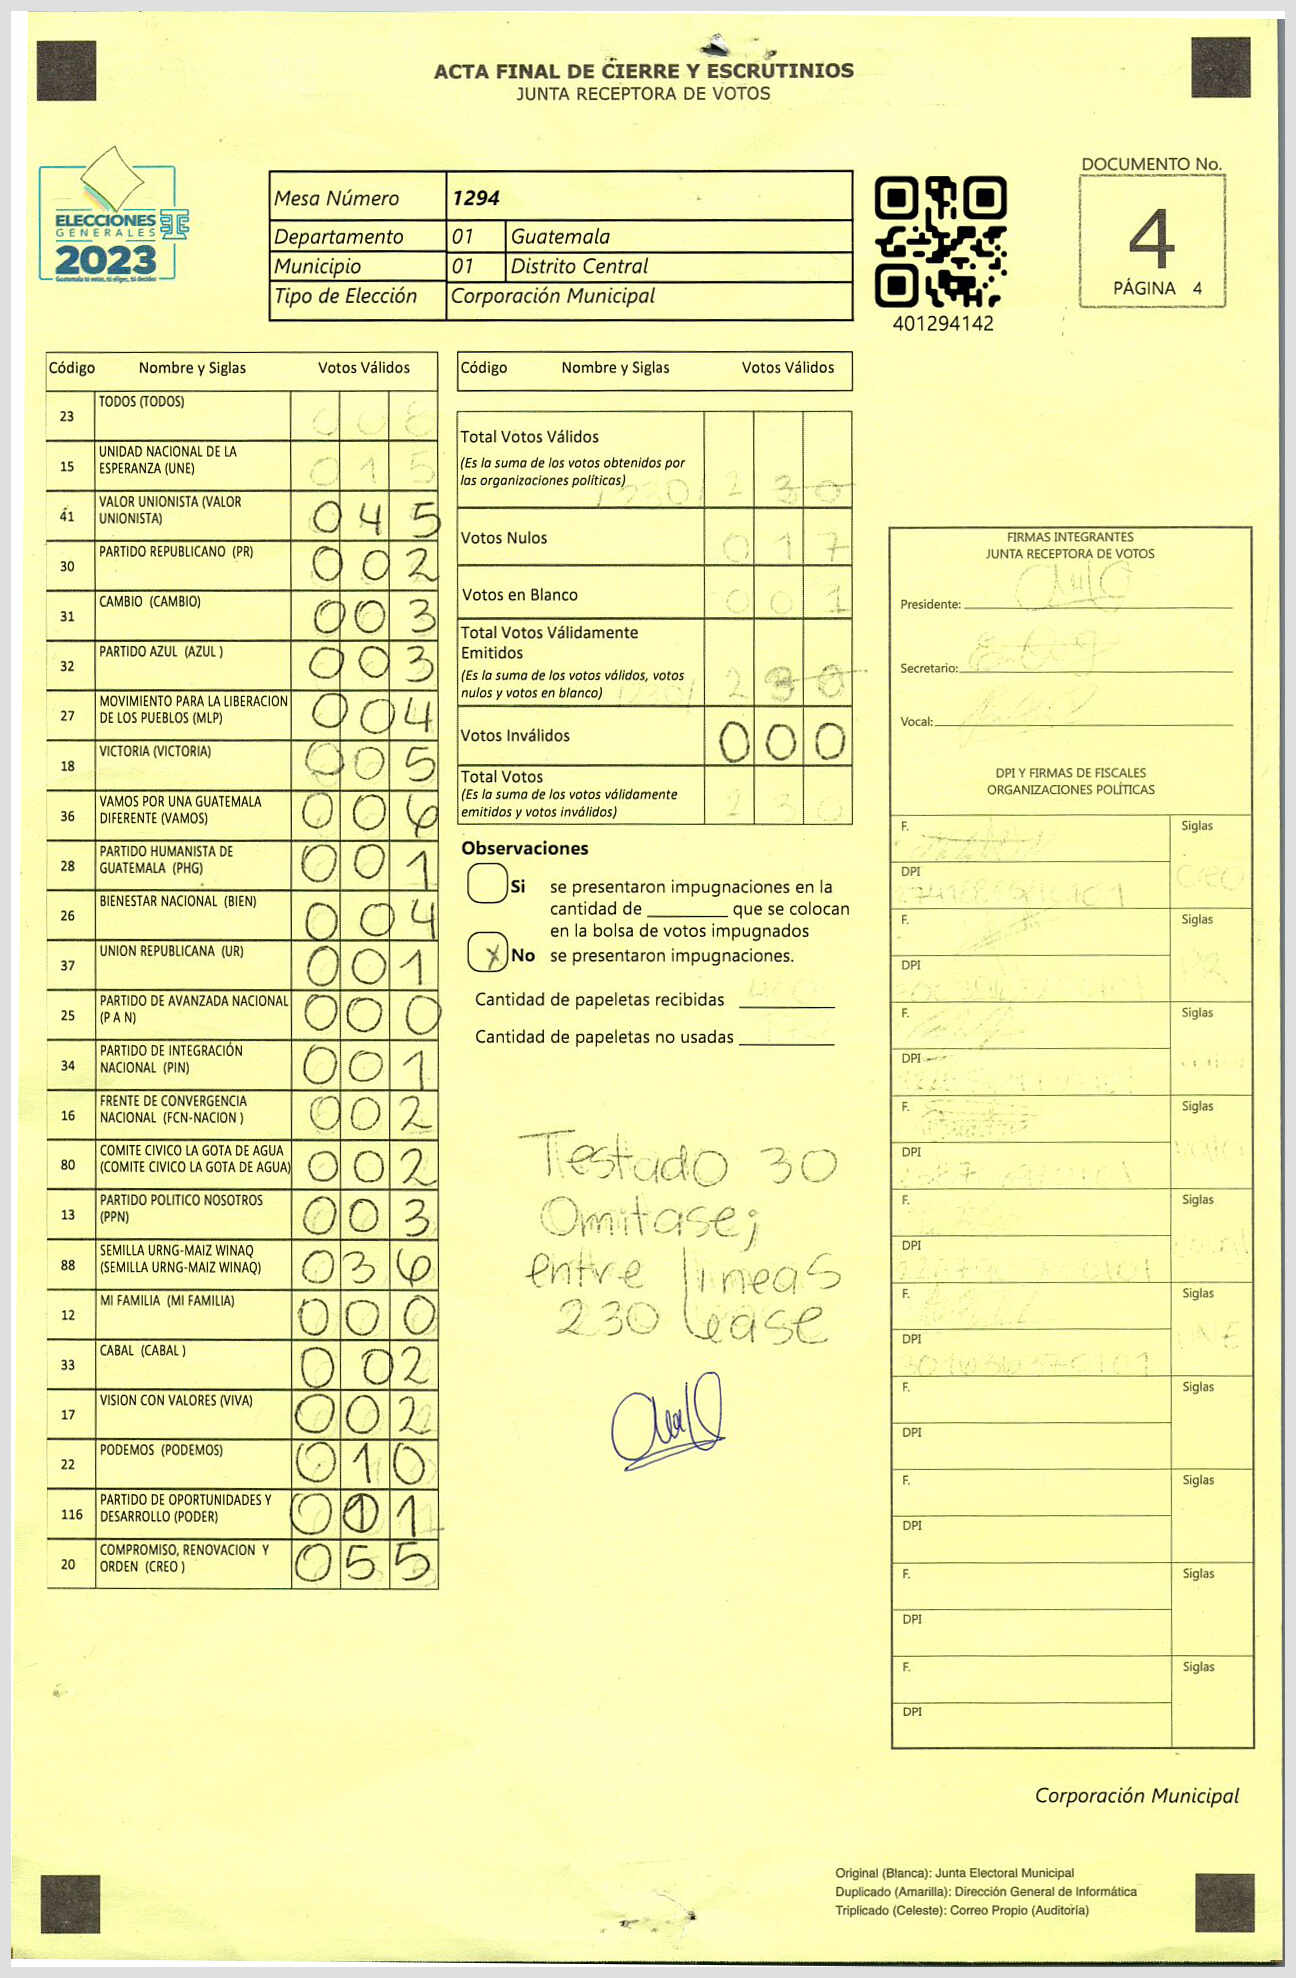 ACTA FINAL DE CIERRE Y ESCRUTINIOS
JUNTA RECEPTORA DE VOTOS
ELECCIONES
GENERALES
2023
Guatemala tú votas, tú eliges, tú decides
Mesa Número 1294
Departamento 01 Guatemala
Municipio 01 Distrito Central
Tipo de Elección Corporación Municipal
401294142
DOCUMENTO No.
4
PÁGINA 4
Código Nombre y Siglas Votos Válidos
23 TODOS (TODOS) 0 0
15 UNIDAD NACIONAL DE LA ESPERANZA (UNE) 0 1 5
41 VALOR UNIONISTA (VALOR UNIONISTA) 0 4 5
30 PARTIDO REPUBLICANO (PR) 0 0 2
31 CAMBIO (CAMBIO) 0 0 3
32 PARTIDO AZUL (AZUL ) 0 0 3
27 MOVIMIENTO PARA LA LIBERACION DE LOS PUEBLOS (MLP) 0 0 4
18 VICTORIA (VICTORIA) 0 0 5
36 VAMOS POR UNA GUATEMALA DIFERENTE (VAMOS) 0 0 6
28 PARTIDO HUMANISTA DE GUATEMALA (PHG) 0 0 1
26 BIENESTAR NACIONAL (BIEN) 0 0 4
37 UNION REPUBLICANA (UR) 0 0 1
25 PARTIDO DE AVANZADA NACIONAL (P A N) 0 0 0
34 PARTIDO DE INTEGRACIÓN NACIONAL (PIN) 0 0 1
16 FRENTE DE CONVERGENCIA NACIONAL (FCN-NACION ) 0 0 2
80 COMITE CIVICO LA GOTA DE AGUA (COMITE CIVICO LA GOTA DE AGUA) 0 0 2
13 PARTIDO POLITICO NOSOTROS (PPN) 0 0 3
88 SEMILLA URNG-MAIZ WINAQ (SEMILLA URNG-MAIZ WINAQ) 0 3 6
12 MI FAMILIA (MI FAMILIA) 0 0 0
33 CABAL (CABAL ) 0 0 2
17 VISION CON VALORES (VIVA) 0 0 2
22 PODEMOS (PODEMOS) 0 1 0
116 PARTIDO DE OPORTUNIDADES Y DESARROLLO (PODER) 0 1 1
20 COMPROMISO, RENOVACION Y ORDEN (CREO ) 0 5 5
Código Nombre y Siglas Votos Válidos
Total Votos Válidos
(Es la suma de los votos obtenidos por
las organizaciones políticas) /230/ 2 3 0
Votos Nulos 0 1 7
Votos en Blanco 0 0 1
Total Votos Válidamente
Emitidos
(Es la suma de los votos válidos, votos
nulos y votos en blanco) /230/ 2 3 0
Votos Inválidos 0 0 0
Total Votos
(Es la suma de los votos válidamente
emitidos y votos inválidos) 2 3 0
Observaciones
Si se presentaron impugnaciones en la
cantidad de ________ que se colocan
en la bolsa de votos impugnados
X No se presentaron impugnaciones.
Cantidad de papeletas recibidas
Cantidad de papeletas no usadas
Testado 30
Omitase;
entre lineas
230 Lease
FIRMAS INTEGRANTES
JUNTA RECEPTORA DE VOTOS
Presidente:
Secretario:
Vocal:
DPI Y FIRMAS DE FISCALES
ORGANIZACIONES POLÍTICAS
F. Siglas
DPI CREO
F. Siglas
DPI PR
F. Siglas
DPI
F. Siglas
DPI
F. Siglas
DPI
F. Siglas
DPI UNE
F. Siglas
DPI
F. Siglas
DPI
F. Siglas
DPI
F. Siglas
DPI
Corporación Municipal
Original (Blanca): Junta Electoral Municipal
Duplicado (Amarilla): Dirección General de Informática
Triplicado (Celeste): Correo Propio (Auditoría)